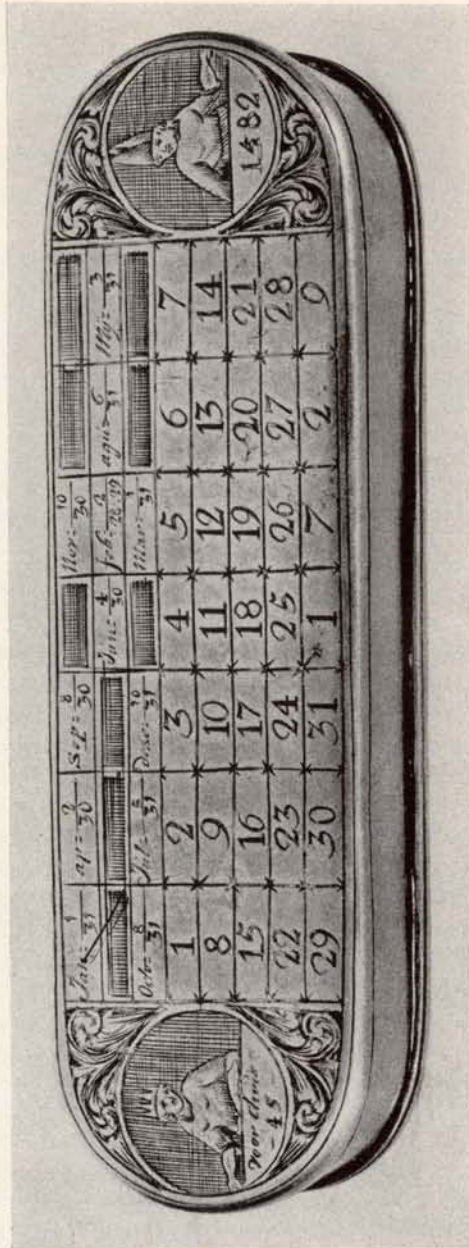 voor Chris
- 45
Jan= 1/31 ap= 2/30 Sep= 8/30 Nov= 10/30
Jun= 4/30 feb= 2/28.29 agu= 6/31 Mij= 3/31
Octo= 8/31 Jul= 5/31 Dese= 10/31 Mar= 1/31
1 2 3 4 5 6 7
8 9 10 11 12 13 14
15 16 17 18 19 20 21
22 23 24 25 26 27 28
29 30 31 1 7 2 9
1482